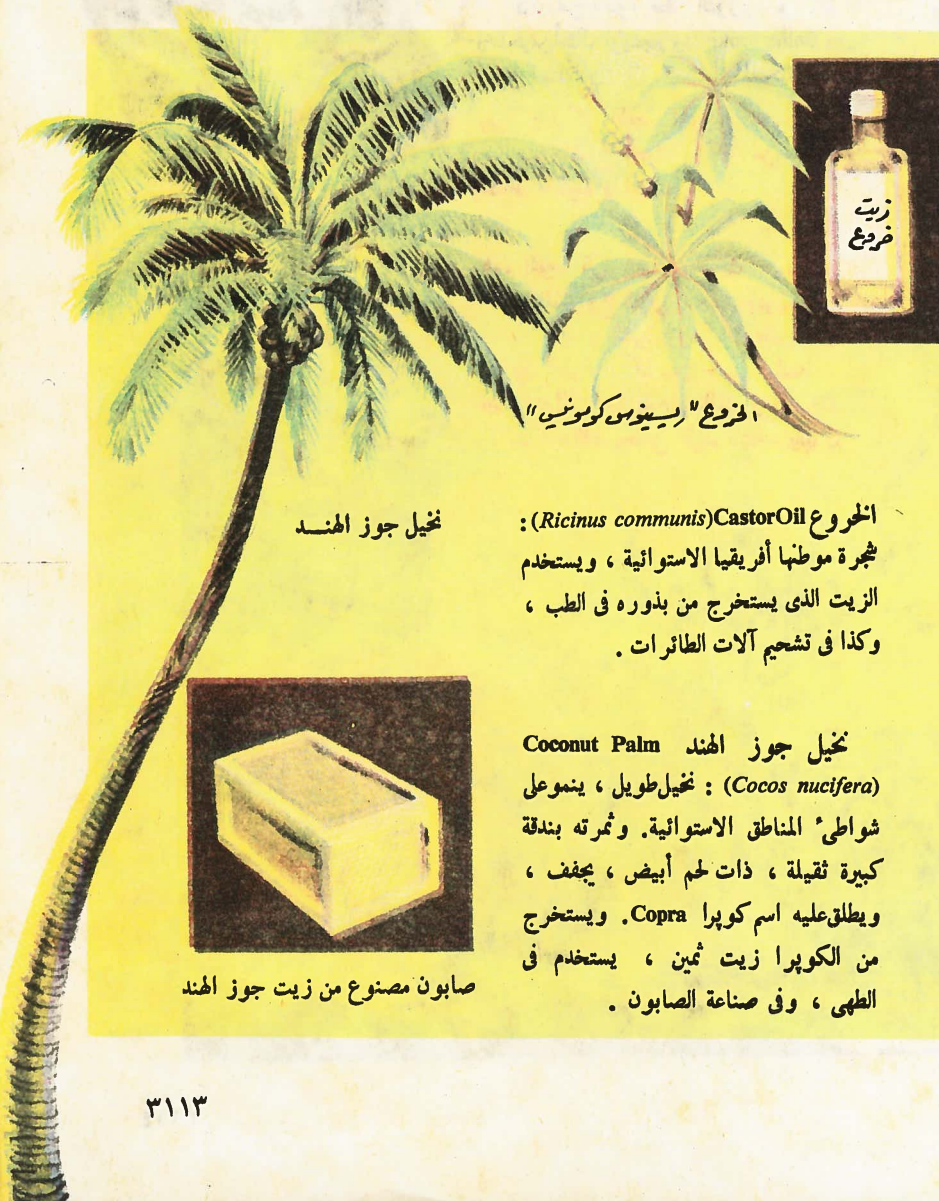 زيت
خروع
الخروع "ريسينوس كومونيس"
نخيل جوز الهنــد
الخروع CastorOil (Ricinus communis) :
شجرة موطنها أفريقيا الاستوائية ، ويستخدم
الزيت الذى يستخرج من بذوره فى الطب ،
وكذا فى تشحيم آلات الطائرات .
نخيل جوز الهند Coconut Palm
(Cocos nucifera) : نخيل طويل ، ينمو على
شواطىء المناطق الاستوائية. وثمرته بندقة
كبيرة ثقيلة ، ذات لحم أبيض ، يجفف ،
ويطلق عليه اسم كوپرا Copra. ويستخرج
من الكوپرا زيت ثمين ، يستخدم فى
الطهى ، وفى صناعة الصابون .
صابون مصنوع من زيت جوز الهند
٣١١٣